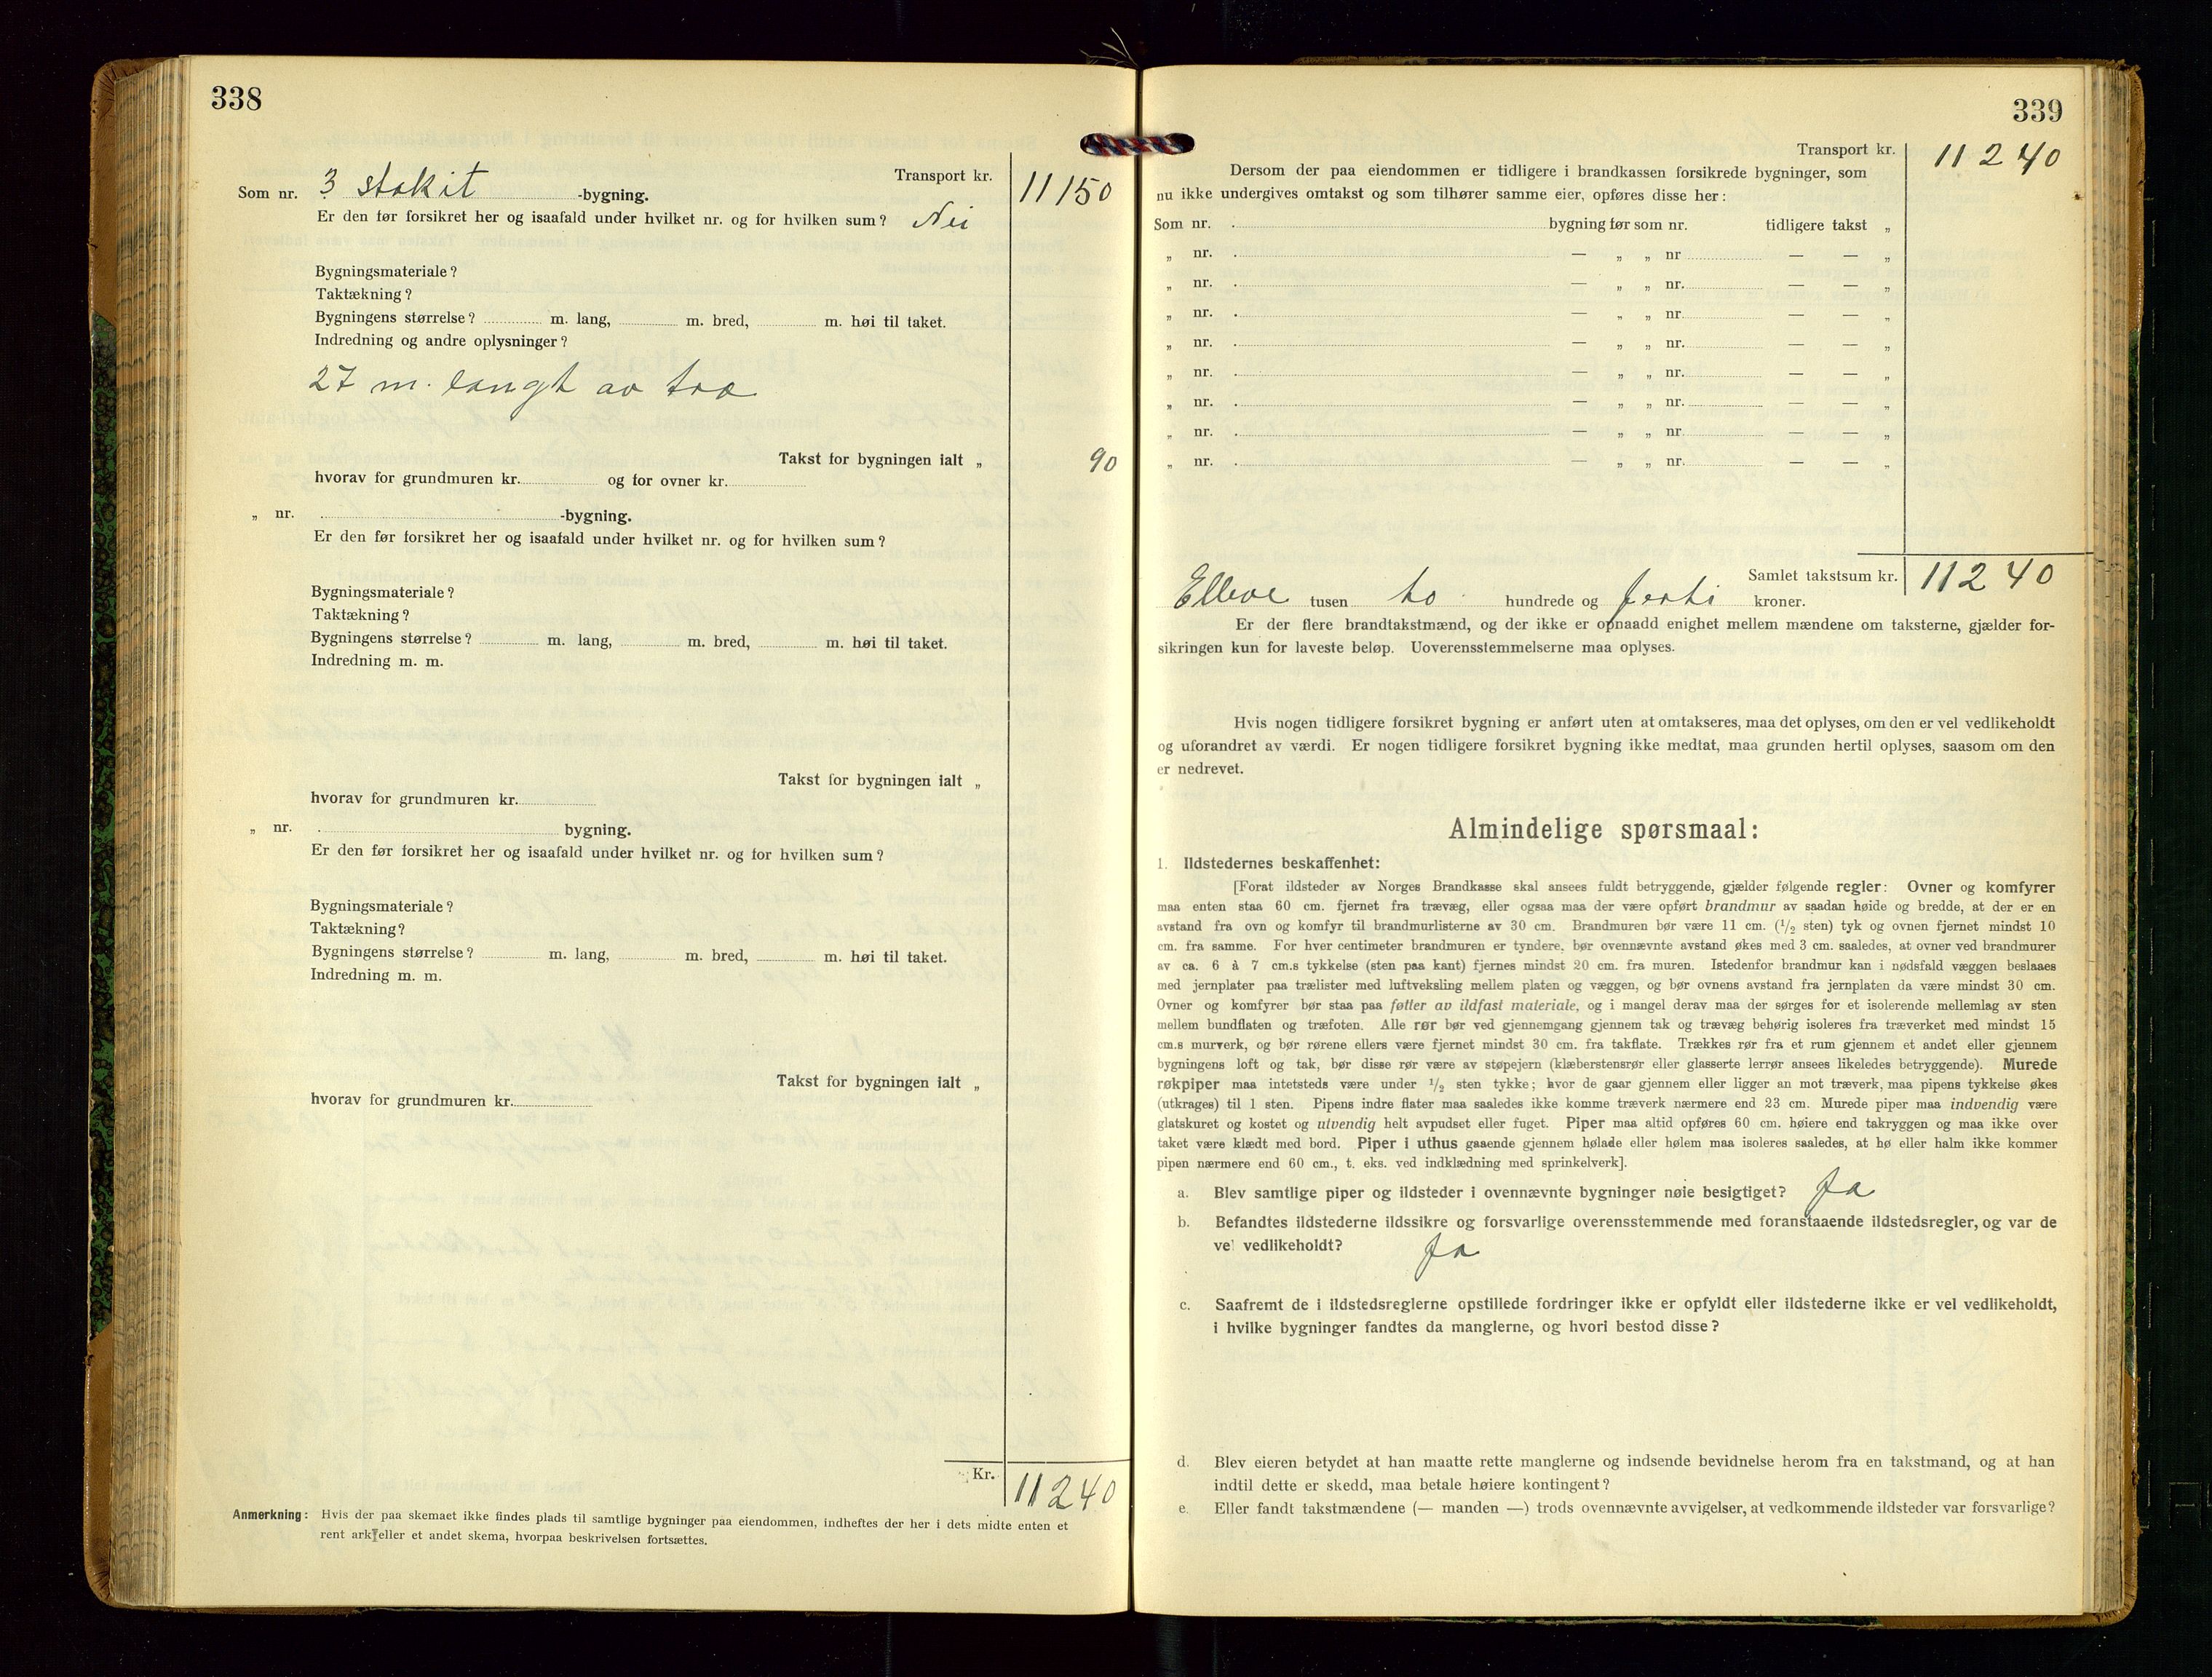 338
Transport kr. 11150
Som nr. 3 stakit -bygning.
Er den før forsikret her og isaafald under hvilket nr. og for hvilken sum? Nei
Bygningsmateriale?
Taktækning?
Bygningens størrelse? m. lang, m. bred, m. høi til taket.
Indredning og andre oplysninger?
27 m. langt av træ
Takst for bygningen ialt „ 90
hvorav for grundmuren kr. og for ovner kr.
„ nr. -bygning.
Er den før forsikret her og isaafald under hvilket nr. og for hvilken sum?
Bygningsmateriale?
Taktækning?
Bygningens størrelse? m. lang, m. bred, m. høi til taket.
Indredning m. m.
Takst for bygningen ialt „
hvorav for grundmuren kr.
„ nr. bygning.
Er den før forsikret her og isaafald under hvilket nr. og for hvilken sum?
Bygningsmateriale?
Taktækning?
Bygningens størrelse? m. lang, m. bred, m. høi til taket.
Indredning m. m.
Takst for bygningen ialt „
hvorav for grundmuren kr.
Kr. 11240
Anmerkning: Hvis der paa skemaet ikke findes plads til samtlige bygninger paa eiendommen, indheftes der her i dets midte enten et
rent ark eller et andet skema, hvorpaa beskrivelsen fortsættes.
339
Transport kr. 11240
Dersom der paa eiendommen er tidligere i brandkassen forsikrede bygninger, som
nu ikke undergives omtakst og som tilhører samme eier, opføres disse her:
Som nr. bygning før som nr. tidligere takst „
„ nr. — „ „ nr — — „
„ nr. — „ „ nr. — — „
„ nr. — „ „ nr. — — „
„ nr. — „ „ nr. — — „
„ nr. — „ „ nr. — — „
„ nr. — „ „ nr. — — „
„ nr. — „ „ nr. — — „
„ nr. — „ „ nr. — — „
Samlet takstsum kr. 11240
Elleve tusen to hundrede og førti kroner.
Er der flere brandtakstmænd, og der ikke er opnaadd enighet mellem mændene om taksterne, gjælder for-
sikringen kun for laveste beløp. Uoverensstemmelserne maa oplyses.
Hvis nogen tidligere forsikret bygning er anført uten at omtakseres, maa det oplyses, om den er vel vedlikeholdt
og uforandret av værdi. Er nogen tidligere forsikret bygning ikke medtat, maa grunden hertil oplyses, saasom om den
er nedrevet.
Almindelige spørsmaal:
1. Ildstedernes beskaffenhet:
[Forat ildsteder av Norges Brandkasse skal ansees fuldt betryggende, gjælder følgende regler: Ovner og komfyrer
maa enten staa 60 cm. fjernet fra trævæg, eller ogsaa maa der være opført brandmur av saadan høide og bredde, at der er en
avstand fra ovn og komfyr til brandmurlisterne av 30 cm. Brandmuren bør være 11 cm. (1/2 sten) tyk og ovnen fjernet mindst 10
cm. fra samme. For hver centimeter brandmuren er tyndere, bør ovennævnte avstand økes med 3 cm. saaledes, at ovner ved brandmurer
av ca. 6 à 7 cm.s tykkelse (sten paa kant) fjernes mindst 20 cm. fra muren. Istedenfor brandmur kan i nødsfald væggen beslaaes
med jernplater paa trælister med luftveksling mellem platen og væggen, og bør ovnens avstand fra jernplaten da være mindst 30 cm.
Ovner og komfyrer bør staa paa føtter av ildfast materiale, og i mangel derav maa der sørges for et isolerende mellemlag av sten
mellem bundflaten og træfoten. Alle rør bør ved gjennemgang gjennem tak og trævæg behørig isoleres fra træverket med mindst 15
cm.s murverk, og bør rørene ellers være fjernet mindst 30 cm. fra takflate. Trækkes rør fra et rum gjennem et andet eller gjennem
bygningens loft og tak, bør disse rør være av støpejern (klæberstensrør eller glasserte lerrør ansees likeledes betryggende). Murede
røkpiper maa intetsteds være under 1/2 sten tykke; hvor de gaar gjennem eller ligger an mot træverk, maa pipens tykkelse økes
(utkrages) til 1 sten. Pipens indre flater maa saaledes ikke komme træverk nærmere end 23 cm. Murede piper maa indvendig være
glatskuret og kostet og utvendig helt avpudset eller fuget. Piper maa altid opføres 60 cm. høiere end takryggen og maa ikke over
taket være klædt med bord. Piper i uthus gaaende gjennem hølade eller hølem maa isoleres saaledes, at hø eller halm ikke kommer
pipen nærmere end 60 cm., t. eks. ved indklædning med sprinkelverk].
a. Blev samtlige piper og ildsteder i ovennævnte bygninger nøie besigtiget? Ja
b. Befandtes ildstederne ildssikre og forsvarlige overensstemmende med foranstaaende ildstedsregler, og var de
vel vedlikeholdt? Ja
c. Saafremt de i ildstedsreglerne opstillede fordringer ikke er opfyldt eller ildstederne ikke er vel vedlikeholdt,
i hvilke bygninger fandtes da manglerne, og hvori bestod disse?
d. Blev eieren betydet at han maatte rette manglerne og indsende bevidnelse herom fra en takstmand, og at han
indtil dette er skedd, maa betale høiere kontingent?
e. Eller fandt takstmændene (— manden —) trods ovennævnte avvigelser, at vedkommende ildsteder var forsvarlige?